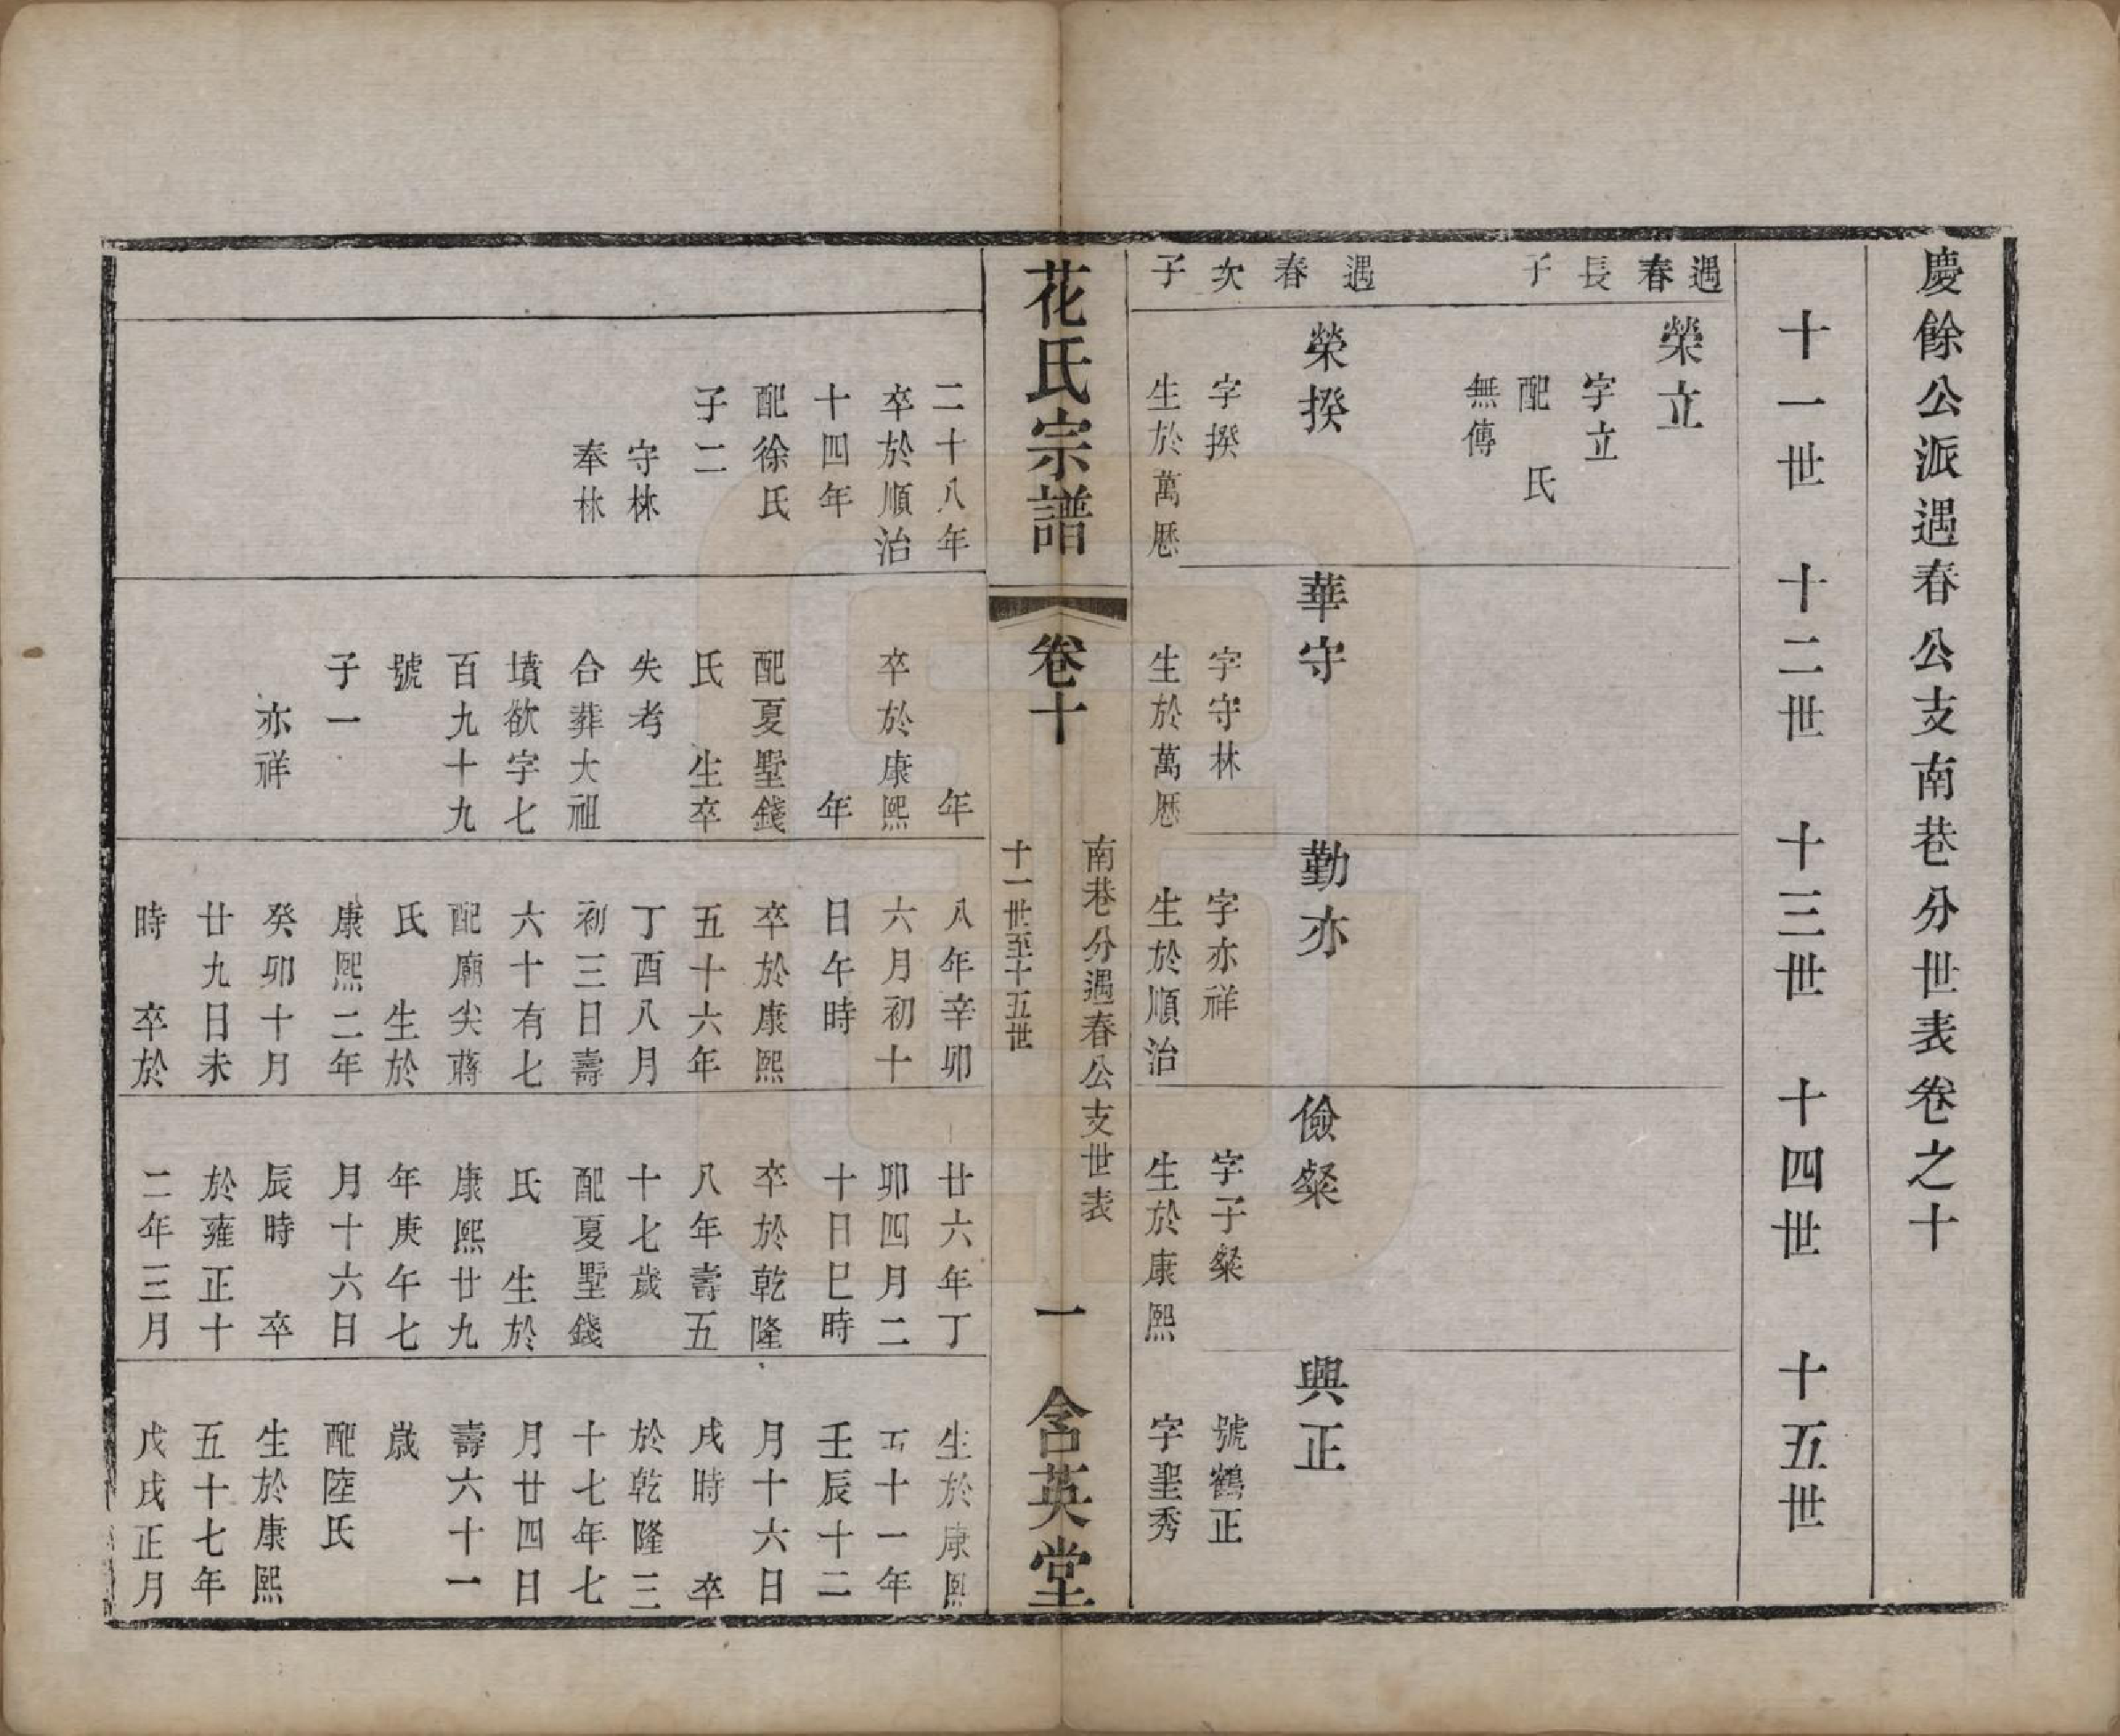 慶餘公派遇春公支南巷分世表卷之十
十一世
十二世
十三世
十四世
十五世
遇春長子
榮立
字立
配　氏
無傳
遇春次子
榮揆
字揆
生於萬厯
華守
字守林
生於萬厯
勤亦
字亦祥
生於順治
儉粲
字子粲
生於康熙
興正
號鶴正
字聖秀
花氏宗譜
卷十
南巷分遇春公支世表
十一世至十五世
一
含英堂
二十八年
卒於順治
十四年
配徐氏
子二
守林
奉林
年
卒於康熙
年
配夏墅錢
氏　生卒
失考
合葬大祖
墳欲字七
百九十九
號
子一
亦祥
八年辛卯
六月初十
日午時
卒於康熙
五十六年
丁酉八月
初三日壽
六十有七
配廟尖蔣
氏　生於
康熙二年
癸卯十月
廿九日未
時　卒於
廿六年丁
卯四月二
十日巳時
卒於乾隆
八年壽五
十七歲
配夏墅錢
氏　生於
康熙廿九
年庚午七
月十六日
辰時　卒
於雍正十
二年三月
生於康熙
五十一年
壬辰十二
月十六日
戌時　卒
於乾隆三
十七年七
月廿四日
壽六十一
歲
配陸氏
生於康熙
五十七年
戊戌正月